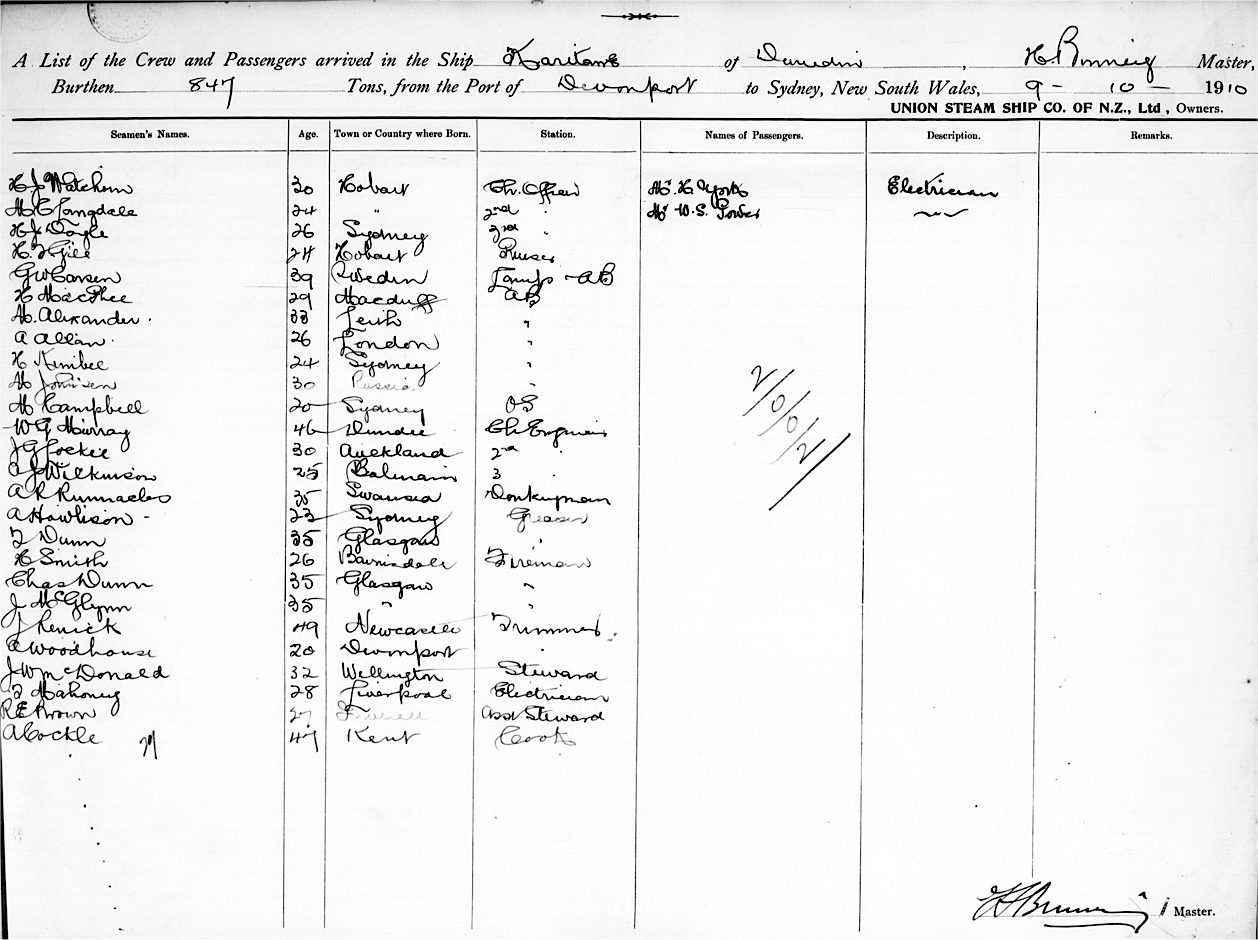 A List of the Crew and Passengers arrived in the Ship Karitane of Dunedin, H. Master,
Burthen 847 Tons, from the Port of Devonport to Sydney, New South Wales, 9 - 10 - 1910
UNION STEAM SHIP CO. OF N.Z., Ltd, Owners.
Seamen's Names. Age. Town or Country where Born. Station. Names of Passengers. Description. Remarks.
H J 30 Hobart Ch. Officer Mr. H. York Electrician
M C Langdale 24 " 2nd " Mr W. S. Power
H J Doyle 26 Sydney 3rd "
H. Gill 24 Hobart
G W Carsen 39 Sweden Lamps - AB
H MacPhee 29 Macduff AB
M. Alexander. 33 Leith "
A Allan. 26 London "
H Kimbel 24 Sydney "
M Johnsen 30 Russia "
M Campbell 20 Sydney OS
W G Murray 46 Dundee Ch Engineer
J G Lockie 30 Auckland 2nd "
J Wilkinson 25 Balmain 3 "
A R Runnacles 35 Swansea Donkeyman
A Howlison - 23 Sydney Greaser
Dunn 35 Glasgow "
H Smith 26 Bairnsdale Fireman
Chas Dunn 35 Glasgow "
J McGlynn 35 " "
J Renick 49 Newcastle Trimmer
A Woodhouse 20 Devonport "
J W McDonald 32 Wellington Steward
Mahoney 28 Liverpool Electrician
R E Brown 27 Asst Steward
A Cockle 47 Kent Cook
2/0/0/2/
Master.